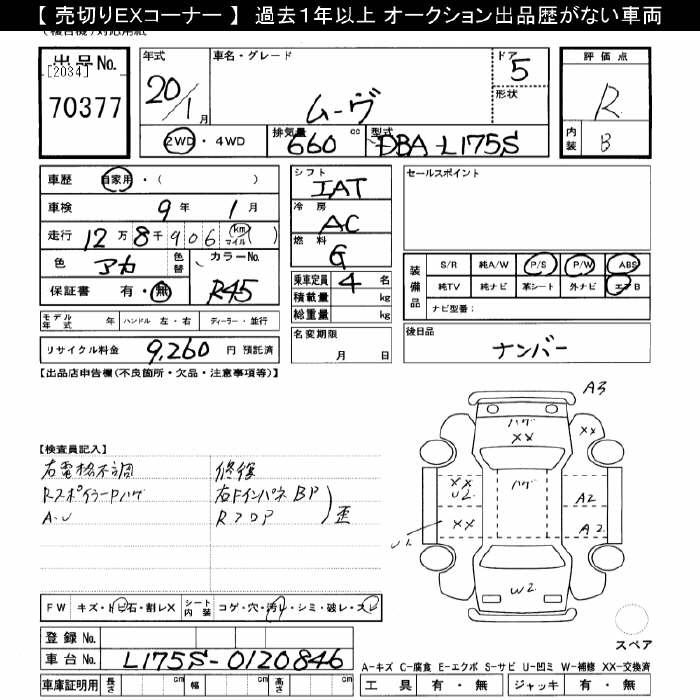 【 売切りEXコーナー 】 過去１年以上 オークション出品歴がない車両
出品No.
[2034]
70377
年式
20/1月
車名・グレード
ムーヴ
ドア
5
形状
2WD・4WD
排気量
660 cc
型式
DBA-L175S
評価点
R
内装
B
車歴 自家用・( )
車検 9年 1月
走行 12万8千906 (km マイル)
色 アカ 色替 カラーNo. R45
保証書 有・無
シフト
IAT
冷房
AC
燃料
G
乗車定員 4 名
積載量 kg
総重量 kg
セールスポイント
装備品
S/R 純A/W P/S P/W ABS
純TV 純ナビ 革シート 外ナビ エアB
ナビ型番：
モデル年式 年 ハンドル 左・右 ディーラー・並行
リサイクル料金 9,260 円 預託済
名変期限
月 日
後日品
ナンバー
【出品店申告欄(不良箇所・欠品・注意事項等)】
【検査員記入】
右電格不調
RスポイラーPハゲ
A.U
修復
右FインパネBP
RフロアP
歪
A3
ハゲ
XX
XX
XX
U2
ハゲ
A2
XX
A2
W2
スペア
FW キズ・ト ビ石・割レX シート内装 コゲ・穴・汚レ・シミ・破レ・スレ
登録 No.
車台 No. L175S-0120846
車庫証明用 長さ cm 幅 cm 高さ cm
A-キズ C-腐食 E-エクボ S-サビ U-凹ミ W-補修 XX-交換済
工具 有・無 ジャッキ 有・無